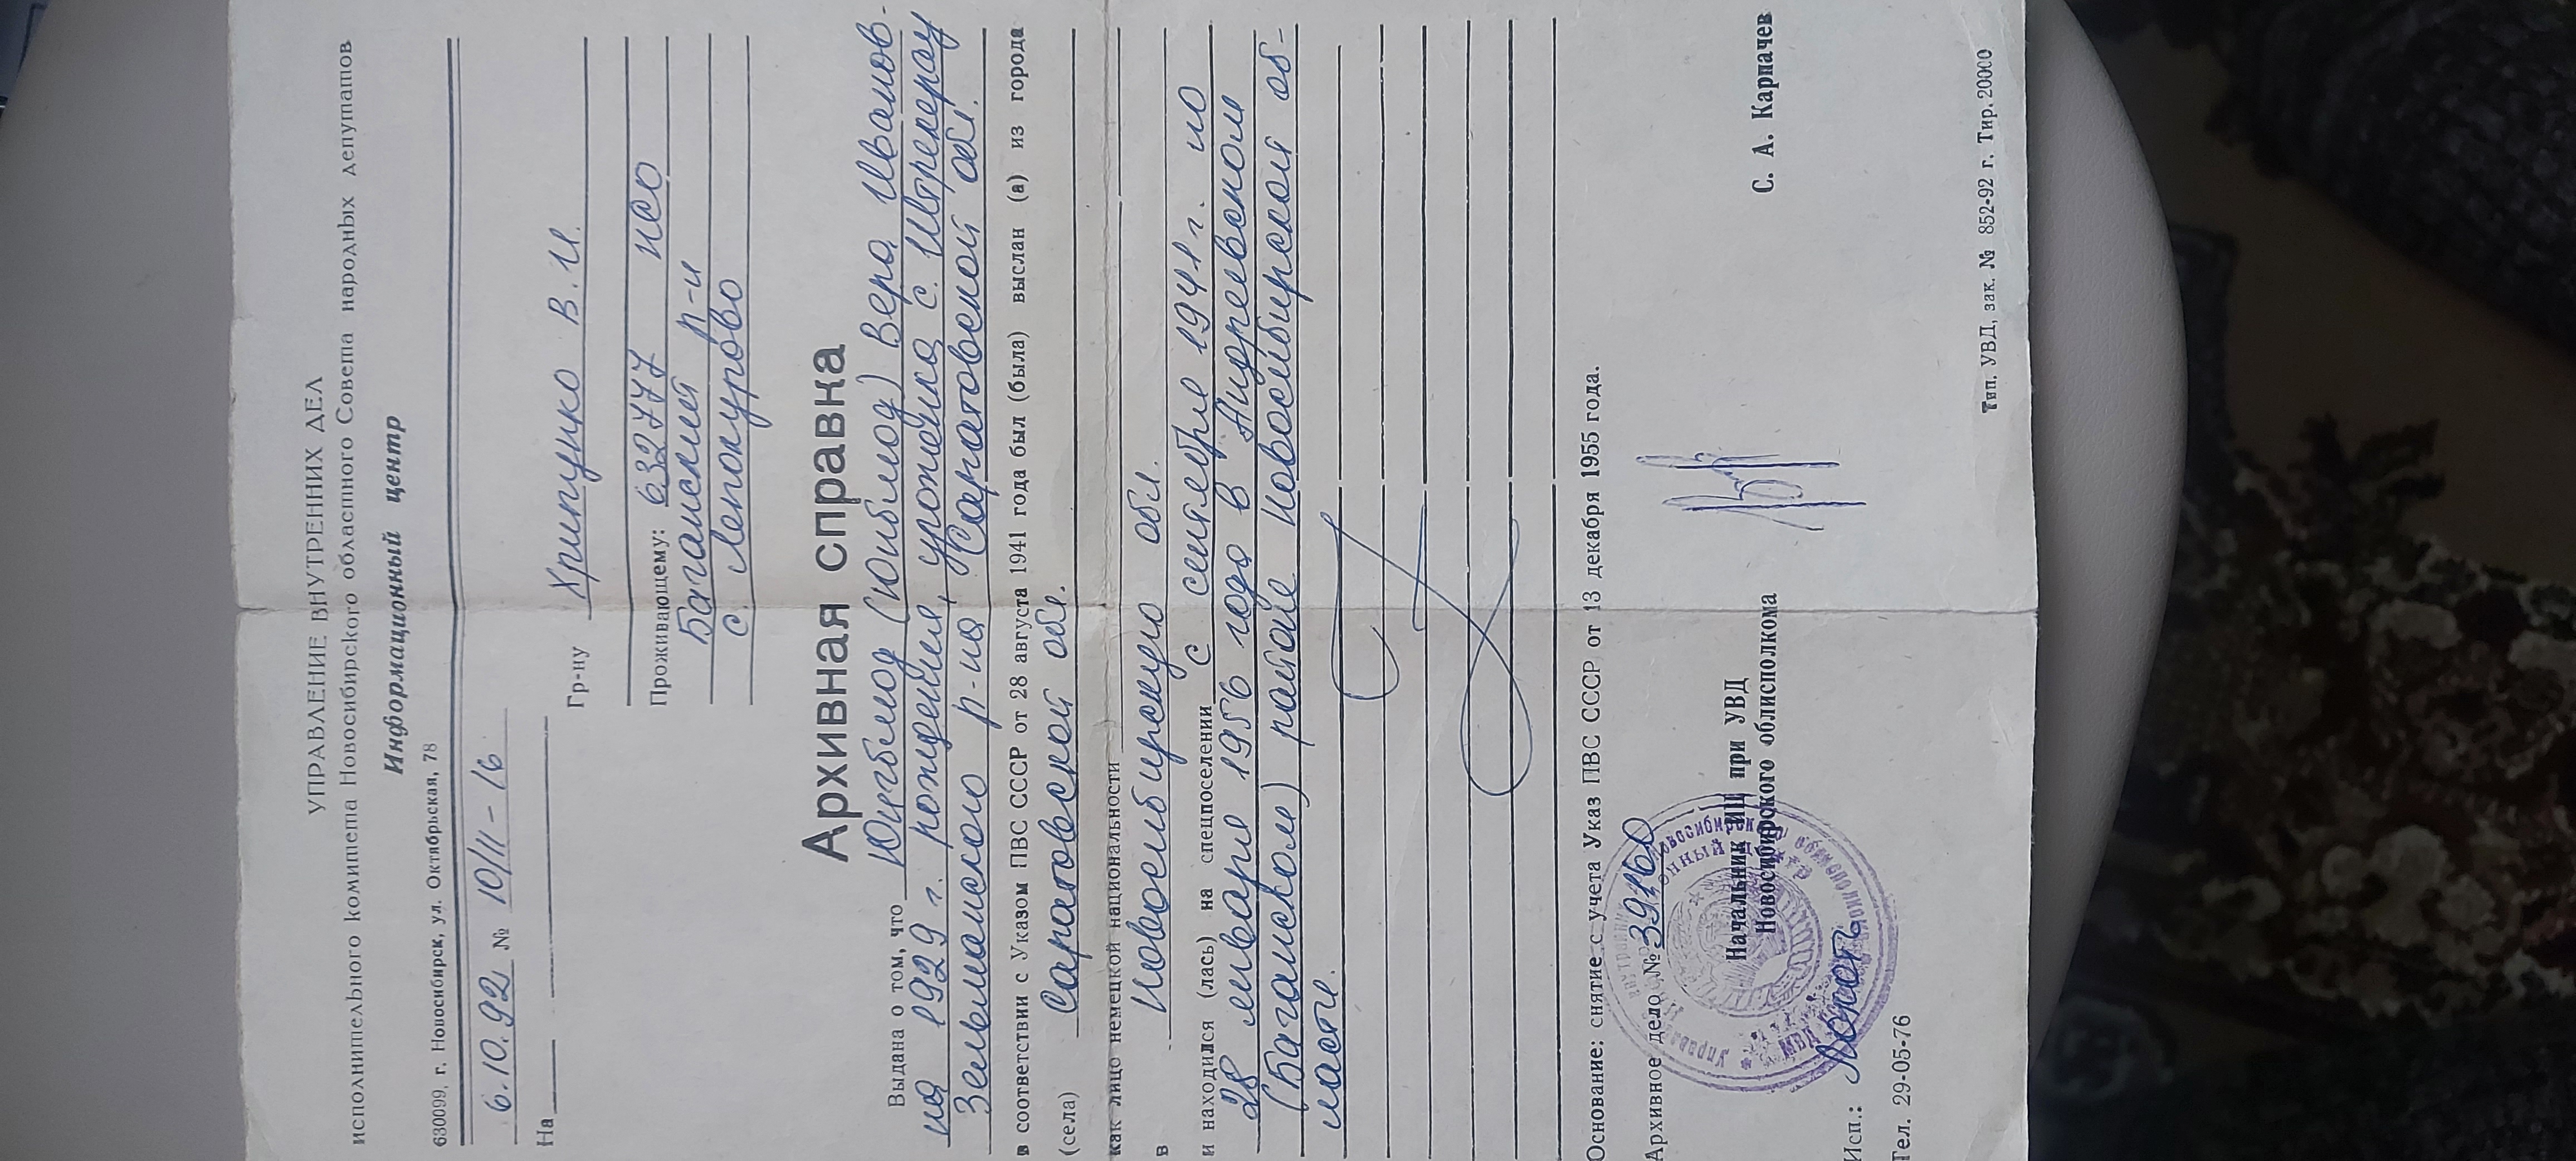 УПРАВЛЕНИЕ ВНУТРЕННИХ ДЕЛ
исполнительного комитета Новосибирского областного Совета народных депутатов
Информационный центр
630099, г. Новосибирск, ул. Октябрьская, 78
6.10.92 № 10/11-16
На
Гр-ну Хрипунко В.И.
Проживающему: 632777 НСО
Баганский р-н
с. Лепокурово
Архивная справка
Выдана о том, что Юнгблюд (Юнблюд) Вера Иванов-
на 1929 г. рождения, уроженка с.
Зельманского р-на, Саратовской обл.
в соответствии с Указом ПВС СССР от 28 августа 1941 года был (была) выслан (а) из города
(села) Саратовской обл.
как лицо немецкой национальности
в Новосибирскую обл.
и находился (лась) на спецпоселении с сентября 1941 г. по
28 января 1956 года в Андреевском
(Баганском) районе Новосибирской об-
ласти.
Основание: снятие с учета Указ ПВС СССР от 13 декабря 1955 года.
Архивное дело № 39160
Начальник ИЦ при УВД
Новосибирского облисполкома
С. А. Карпачев
Исп.:
Тел. 29-05-76
Тип. УВД, зак. № 852-92 г. Тир. 20000